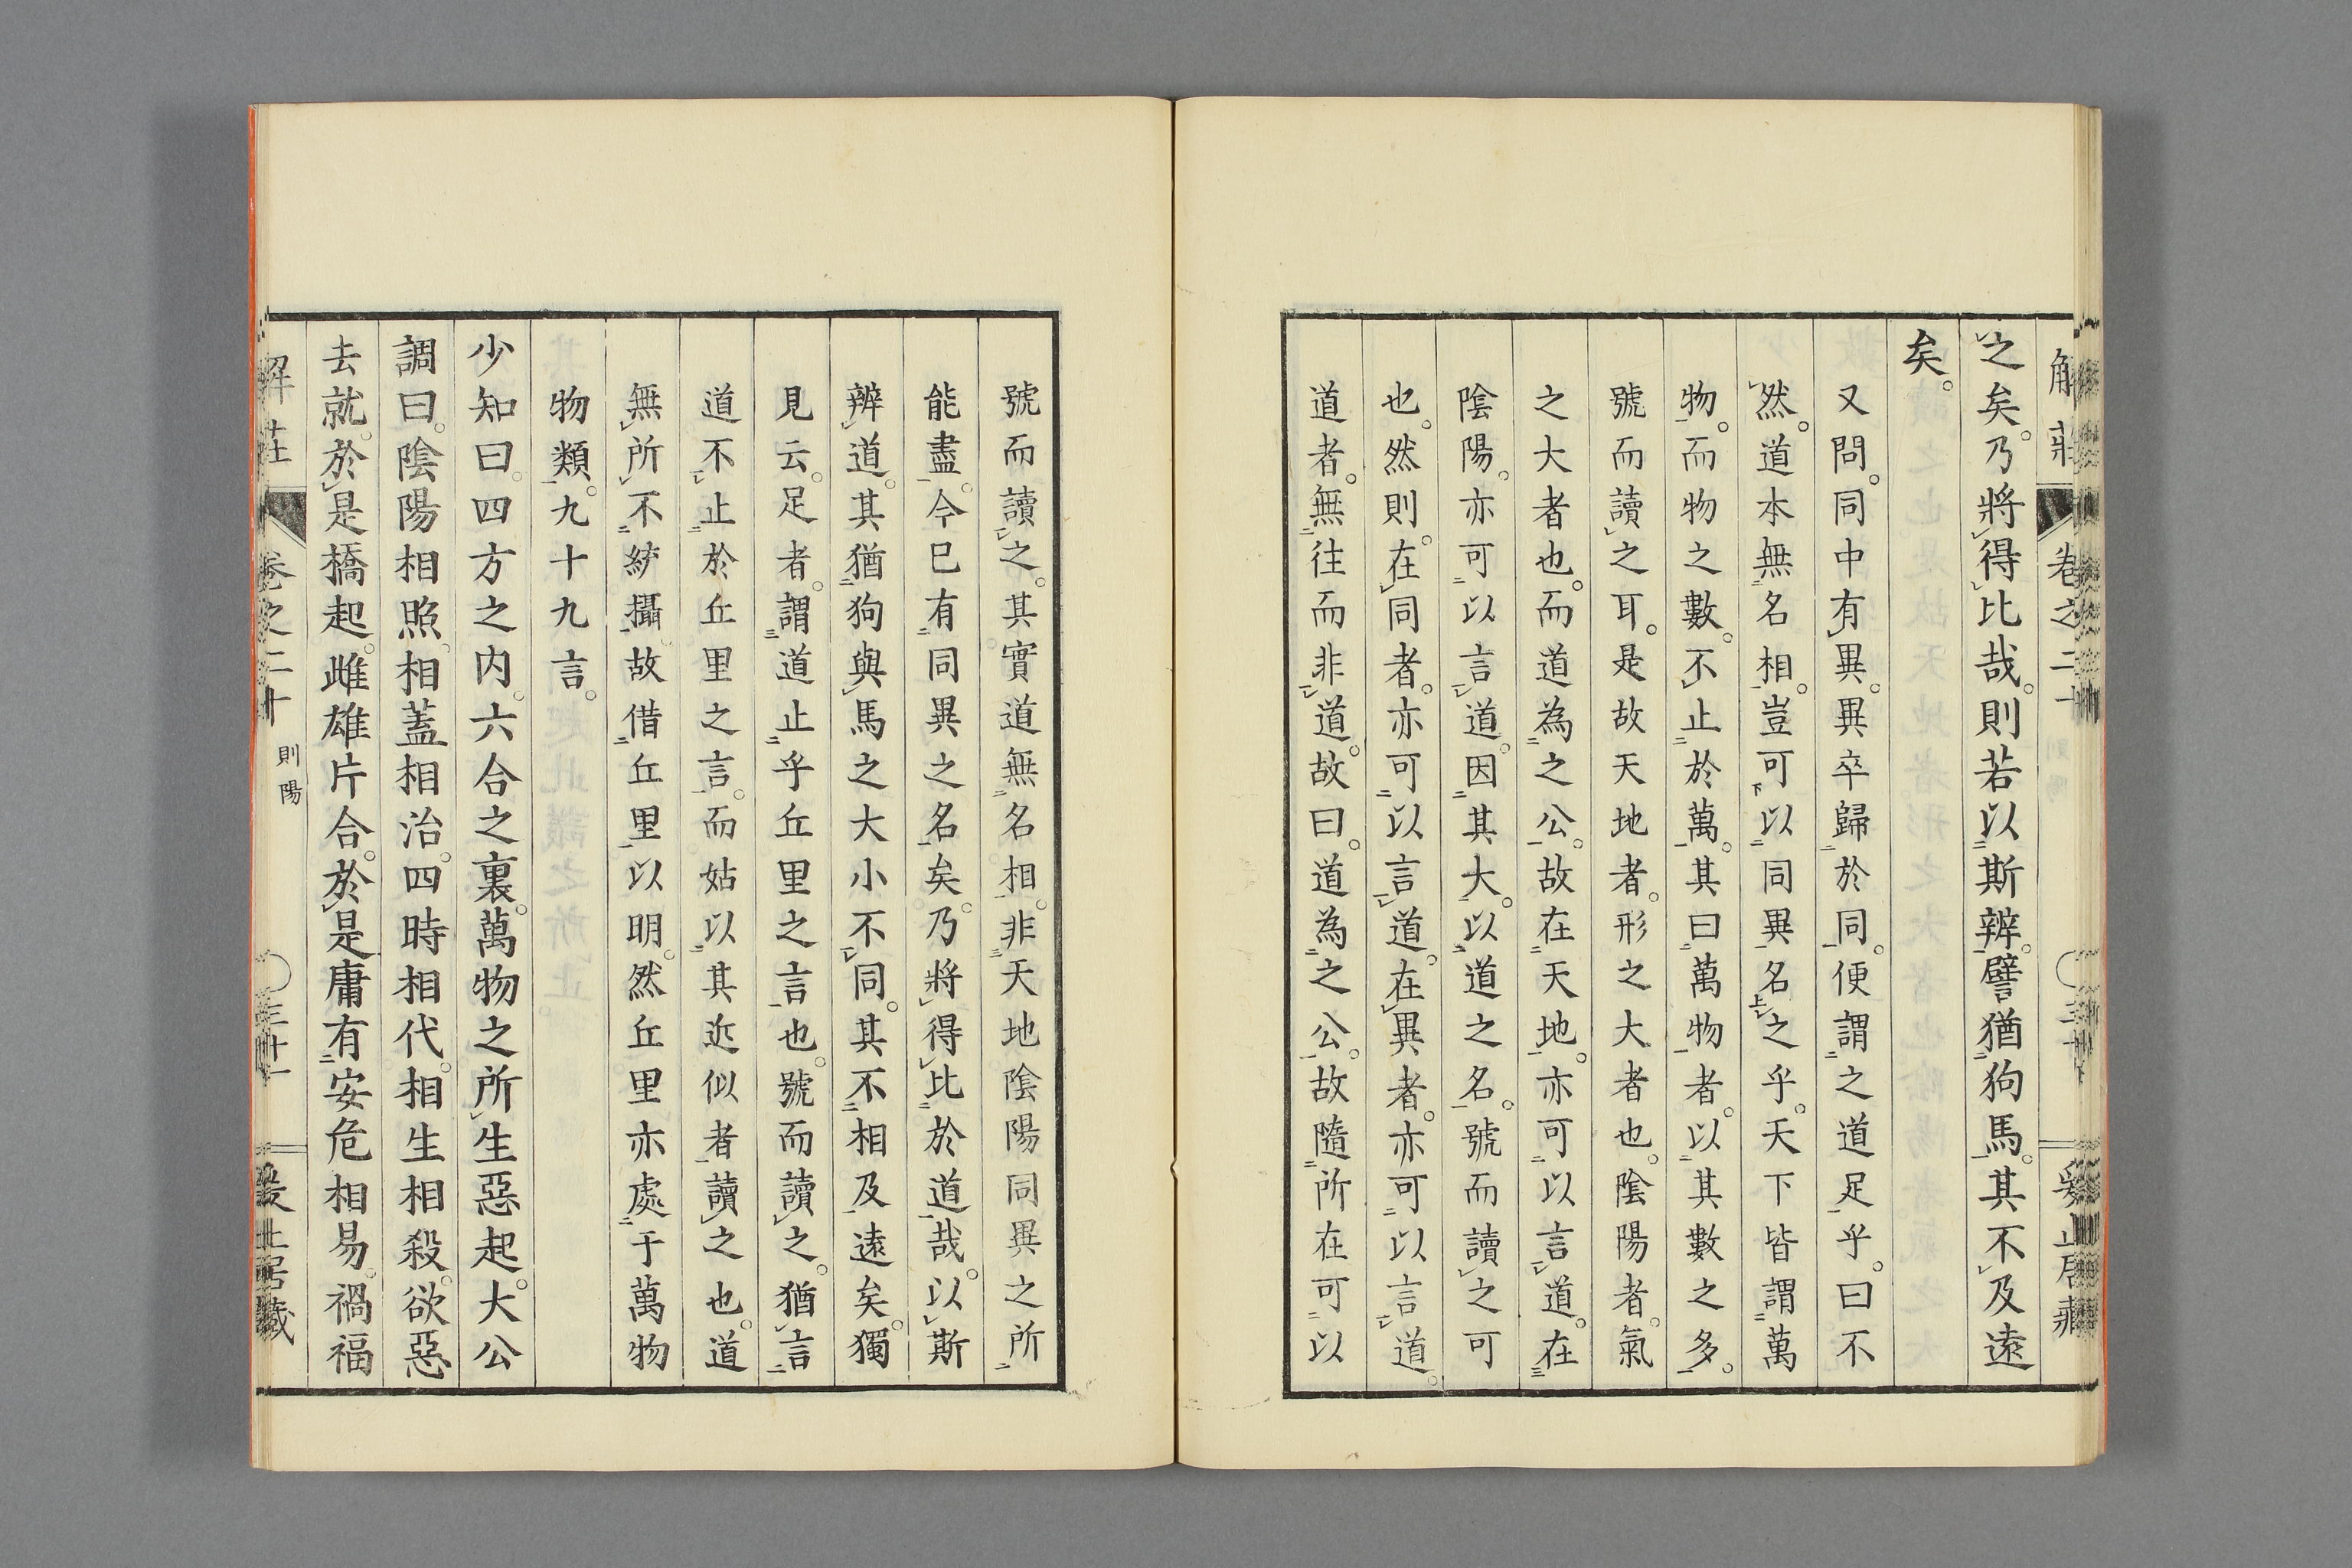 解莊 卷之二十
之矣。乃將得比哉。則若以斯辨。譬猶狗馬。其不及遠
矣。
又問。同中有異。異卒歸於同。便謂之道足乎。曰不
然。道本無名相。豈可以同異名之乎。天下皆謂萬
物。而物之數。不止於萬。其曰萬物者。以其數之多。
號而讀之耳。是故天地者。形之大者也。陰陽者。氣
之大者也。而道為之公。故在天地。亦可以言道。在
陰陽。亦可以言道。因其大。以道之名。號而讀之可
也。然則。在同者。亦可以言道。在異者。亦可以言道。
道者。無往而非道。故曰。道為之公。故隨所在可以
號而讀之。其實道無名相。非天地陰陽同異之所
能盡。今已有同異之名矣。乃將得比於道哉。以斯
辨道。其猶狗與馬之大小不同。其不相及遠矣。獨
見云。足者。謂道止乎丘里之言也。號而讀之。猶言
道不止於丘里之言。而姑以其近似者讀之也。道
無所不統攝。故借丘里以明。然丘里亦處于萬物
物類。九十九言。
少知曰。四方之內。六合之裏。萬物之所生惡起。大公
調曰。陰陽相照。相蓋相治。四時相代。相生相殺。欲惡
去就。於是橋起。雌雄片合。於是庸有安危相易。禍福
解莊 卷之二十 則陽 三十一